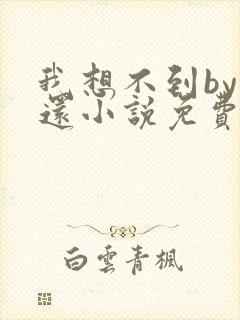 我想不到by
還小說免費
白雲青楓